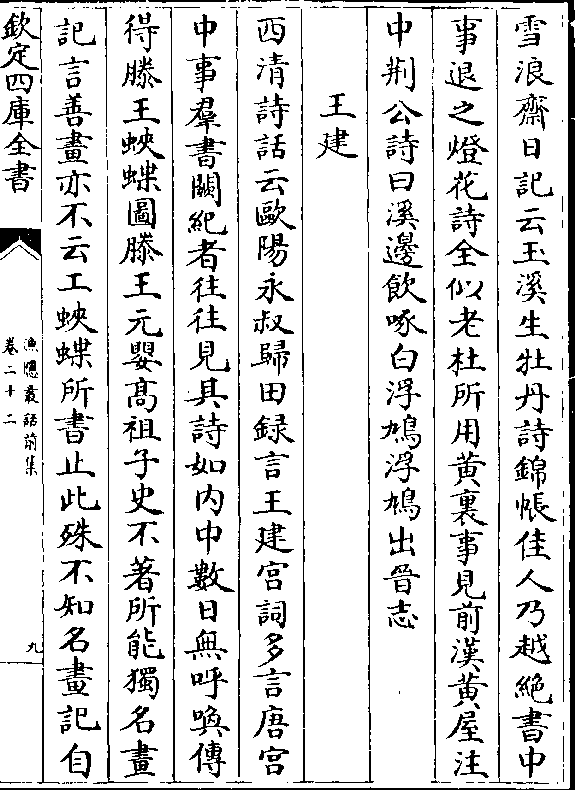 雪浪齋日記云玉溪生牡丹詩錦帳佳人乃越絶書中
事退之燈花詩全似老杜所用黄裏事見前漢黄屋注
中荆公詩曰溪邊飲啄白浮鳩浮鳩出晉志
王建
西清詩話云歐陽永叔歸田録言王建宫詞多言唐宫
中事羣書闕紀者往往見其詩如内中數日無呼喚傳
得滕王蛺蝶圖滕王元嬰髙祖子史不著所能獨名畫
記言善畫亦不云工蛺蝶所書止此殊不知名畫記自
欽定四庫全書
漁隠叢話前集
卷二十二
九